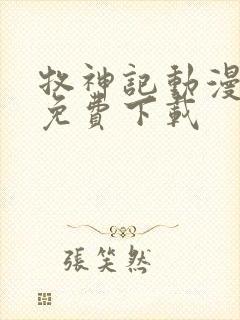 牧神記動漫
免費下載
張笑然